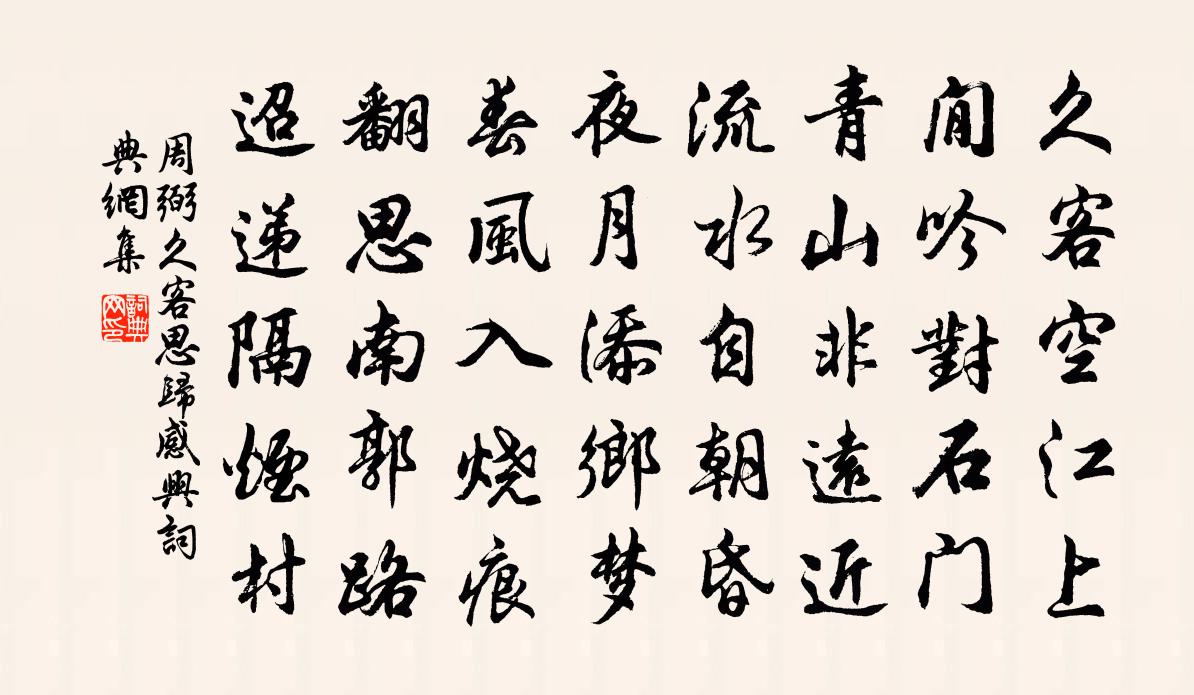 久客空江上
閒吟對石门
青山非遠近
流水自朝昏
夜月添鄉梦
春風入烧痕
翻思南郭路
迢递隔煙村
周弼久客思歸感興詞
典網集
詞典网印